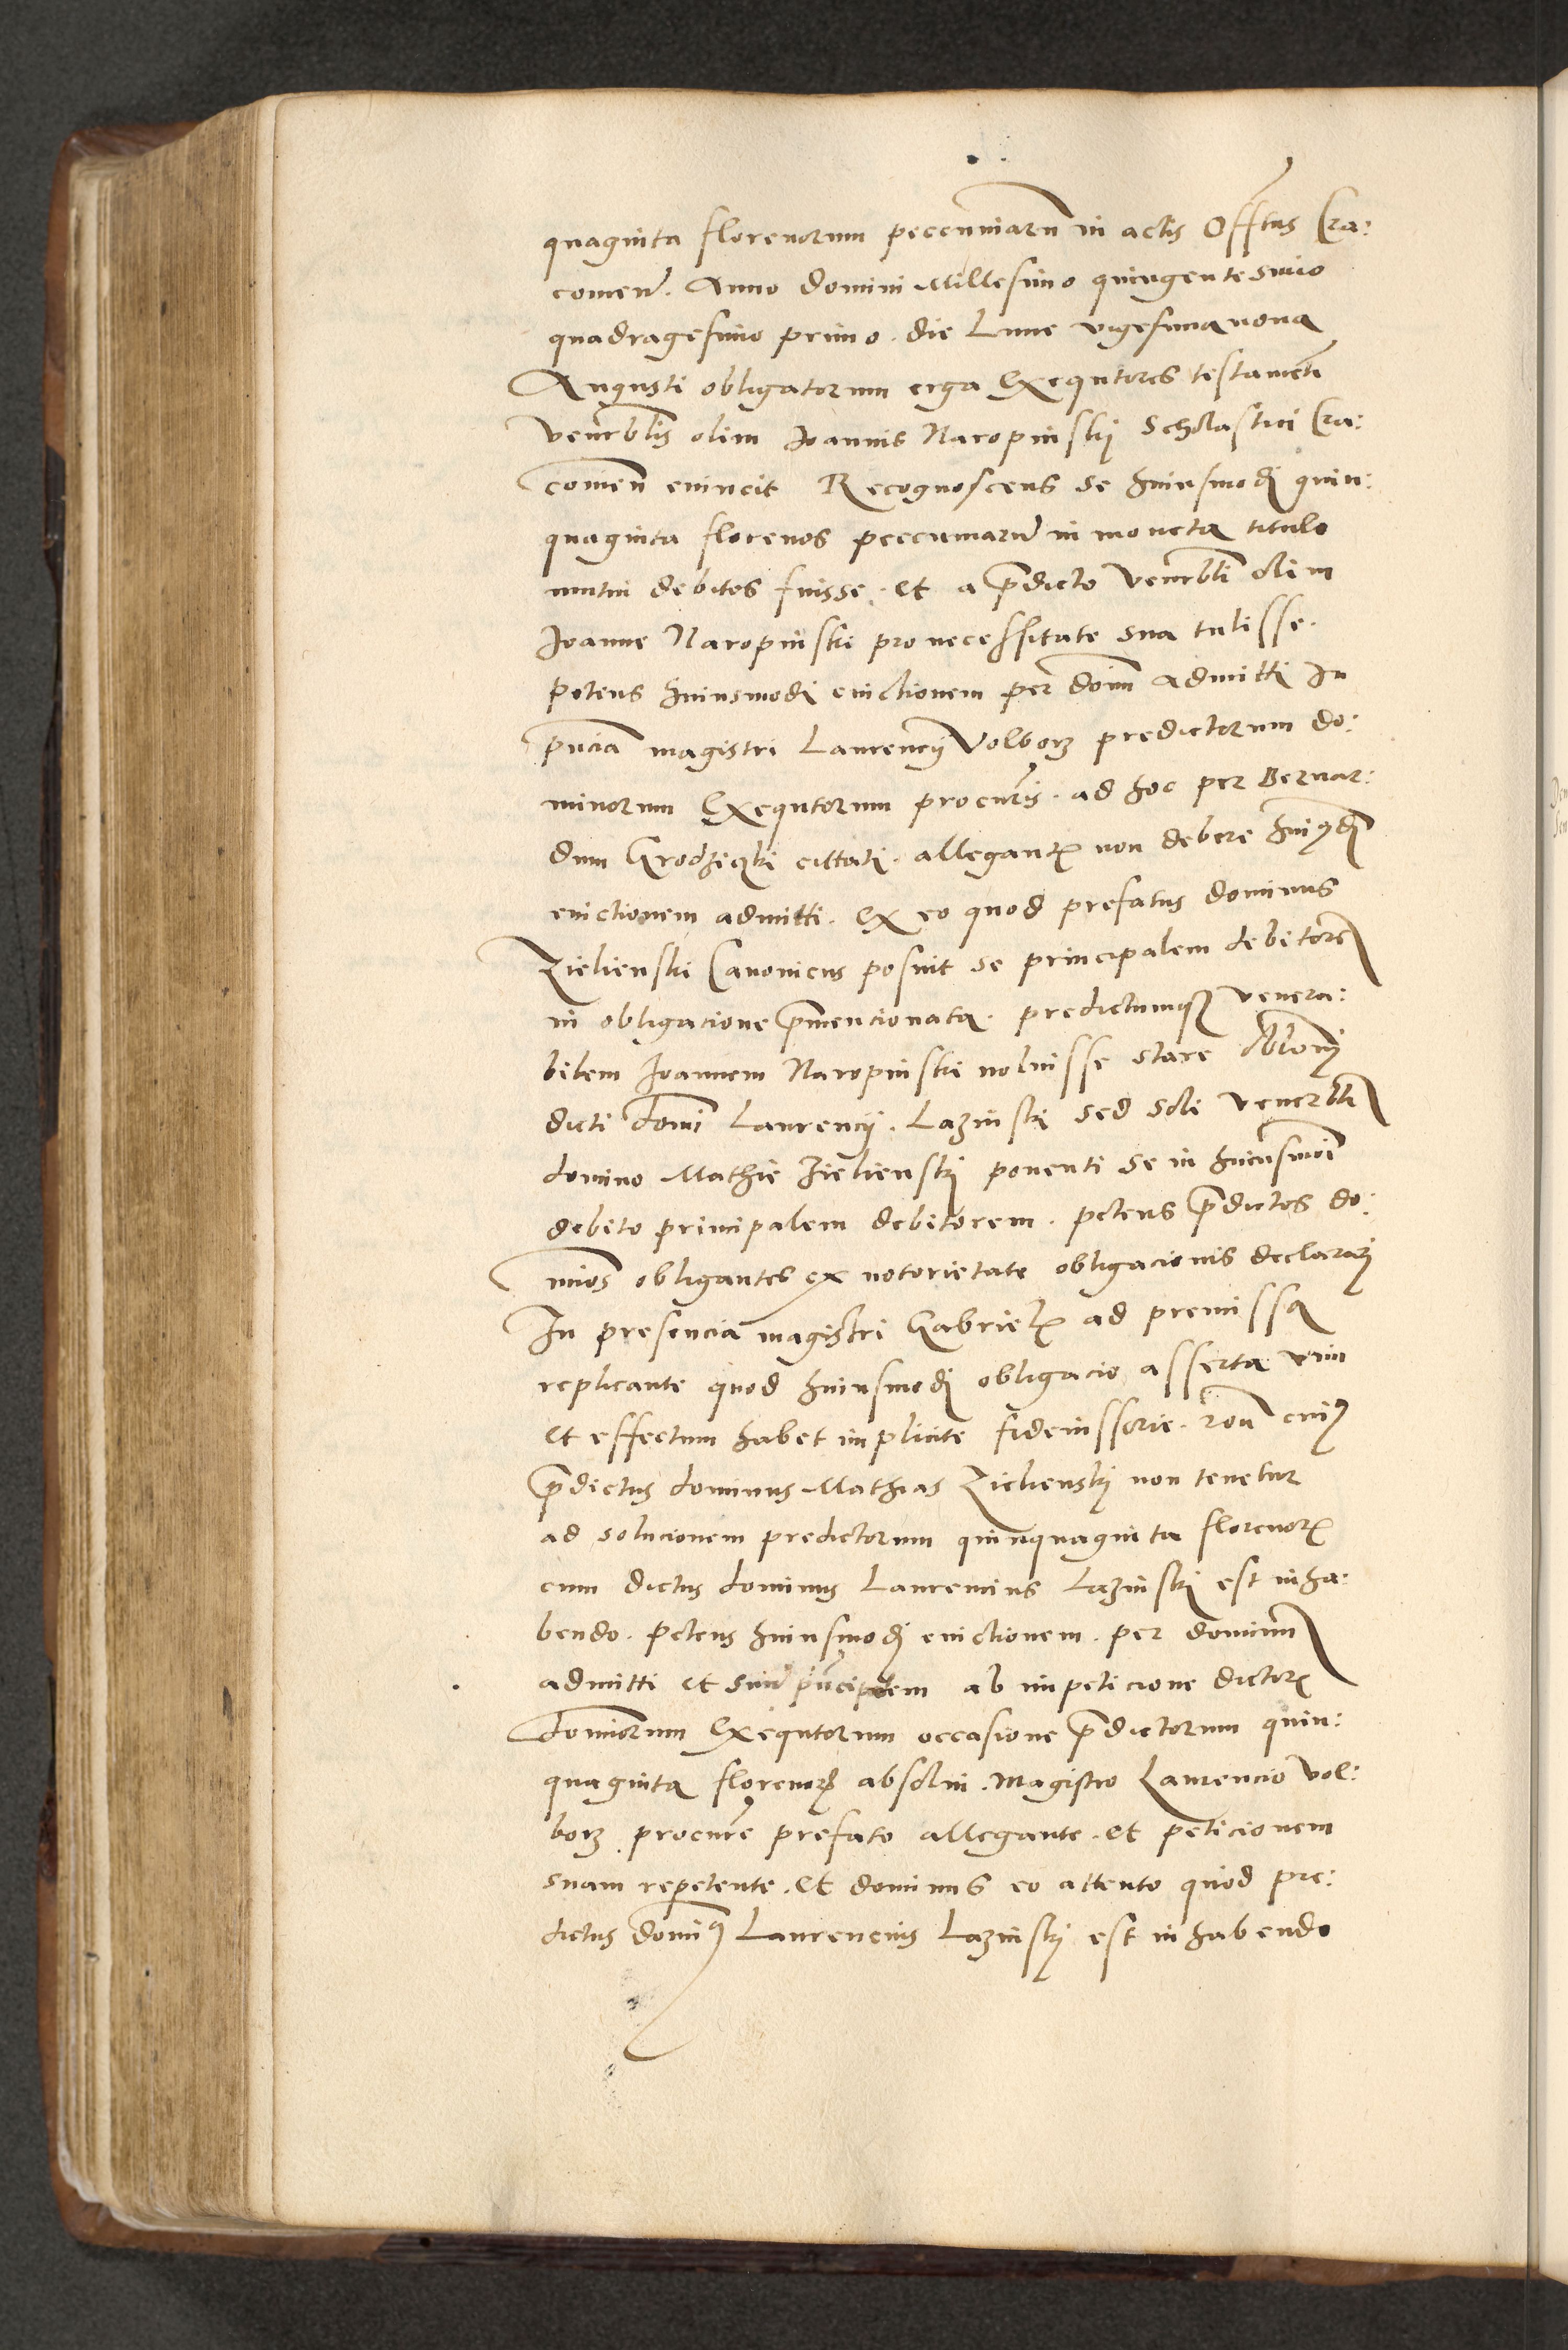 quaginta florenorum peccuniarũ in actis Offtus Cra:
couien̄. Anno domini Millesimo quingentesimo
quadragesimo primo. die Lune vigesimanona
Augusti obligatorum erga Exequtores testamẽti
venerblis olim Joannis Naropinskj Scholastici Cra:
couien̄ euincit Recognoscens se huiusmodj quin:
quaginta florenos peccuniarũ in moneta titulo
mutui debitos fuisse. et a p̄dicto venerbli olim
Joanne Naropinski pro necessitate sua tulisse.
petens huiusmodj euictionem per dom̄ admitti In
pñcia magistri Laurencij Volborz predictorum do:
minorum Exequtorum procuris. ad hoc per Bernar:
dum Grodzieczki cittati. allegantꝭ non debere huiꝰdj
euictionem admitti. Ex eo quod prefatus dominus
Zielienski Canonicus posuit se principalem debitorẽ
in obligacione p̄mencionata. predictumqꝫ venera:
bilem Joannem Naropinski noluisse stare oblonj
dicti domi Laurencij. Lazinskj sed soli venerbli
domino Mathie Zielienskj ponenti se in huiusmoi
debito principalem debitorem. petens p̄dictos do:
mios obligantes ex notorietate obligacionis declararj
In presencia magistri Gabrielꝭ ad premissa
replicante quod huiusmodj obligacio asserta vim
et effectum habet implicite fideiussorie. roñ cuiꝰ
p̄dictus dominus Mathias Zielienskj non tenetur
ad solucionem predictorum quinquaginta florenorꝭ
cum dictus dominus Laurencius Lazinskj est in ha:
bendo. petens huiusmodj euictionem. per dominũ
admitti et suũ principalem ab impeticione dictorꝭ
domiorum Exequtorum occasione p̄dictorum quin:
quaginta florenorꝭ absolui. Magistro Laurencio Vol:
borz procure prefato allegante. et peticionem
suam repetente. et dominus eo attento quod pre:
dictus domiꝰ Laurencius Lazinskj est in habendo